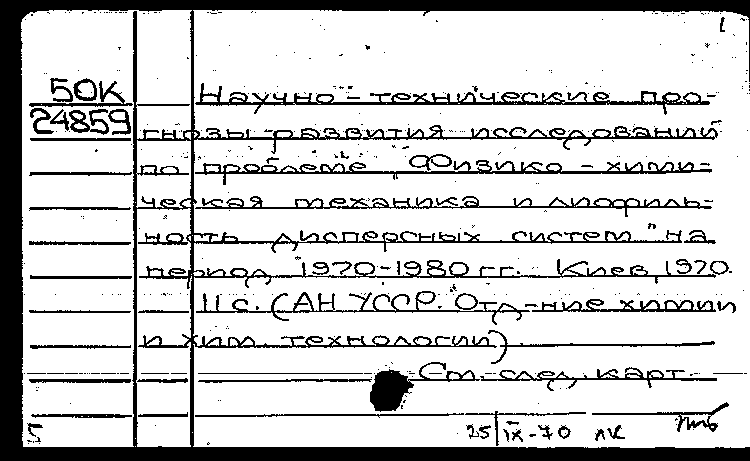 1
50К
24859
Научно-технические про-
гнозы развития исследований
по проблеме „Физико-хими-
ческая механика и лиофиль-
ность дисперсных систем" на
период 1970-1980 гг. Киев, 1970.
11 с. (АН УССР. Отд-ние химии
и хим. технологии)
См. след. карт.
5 25/IX-70 лк